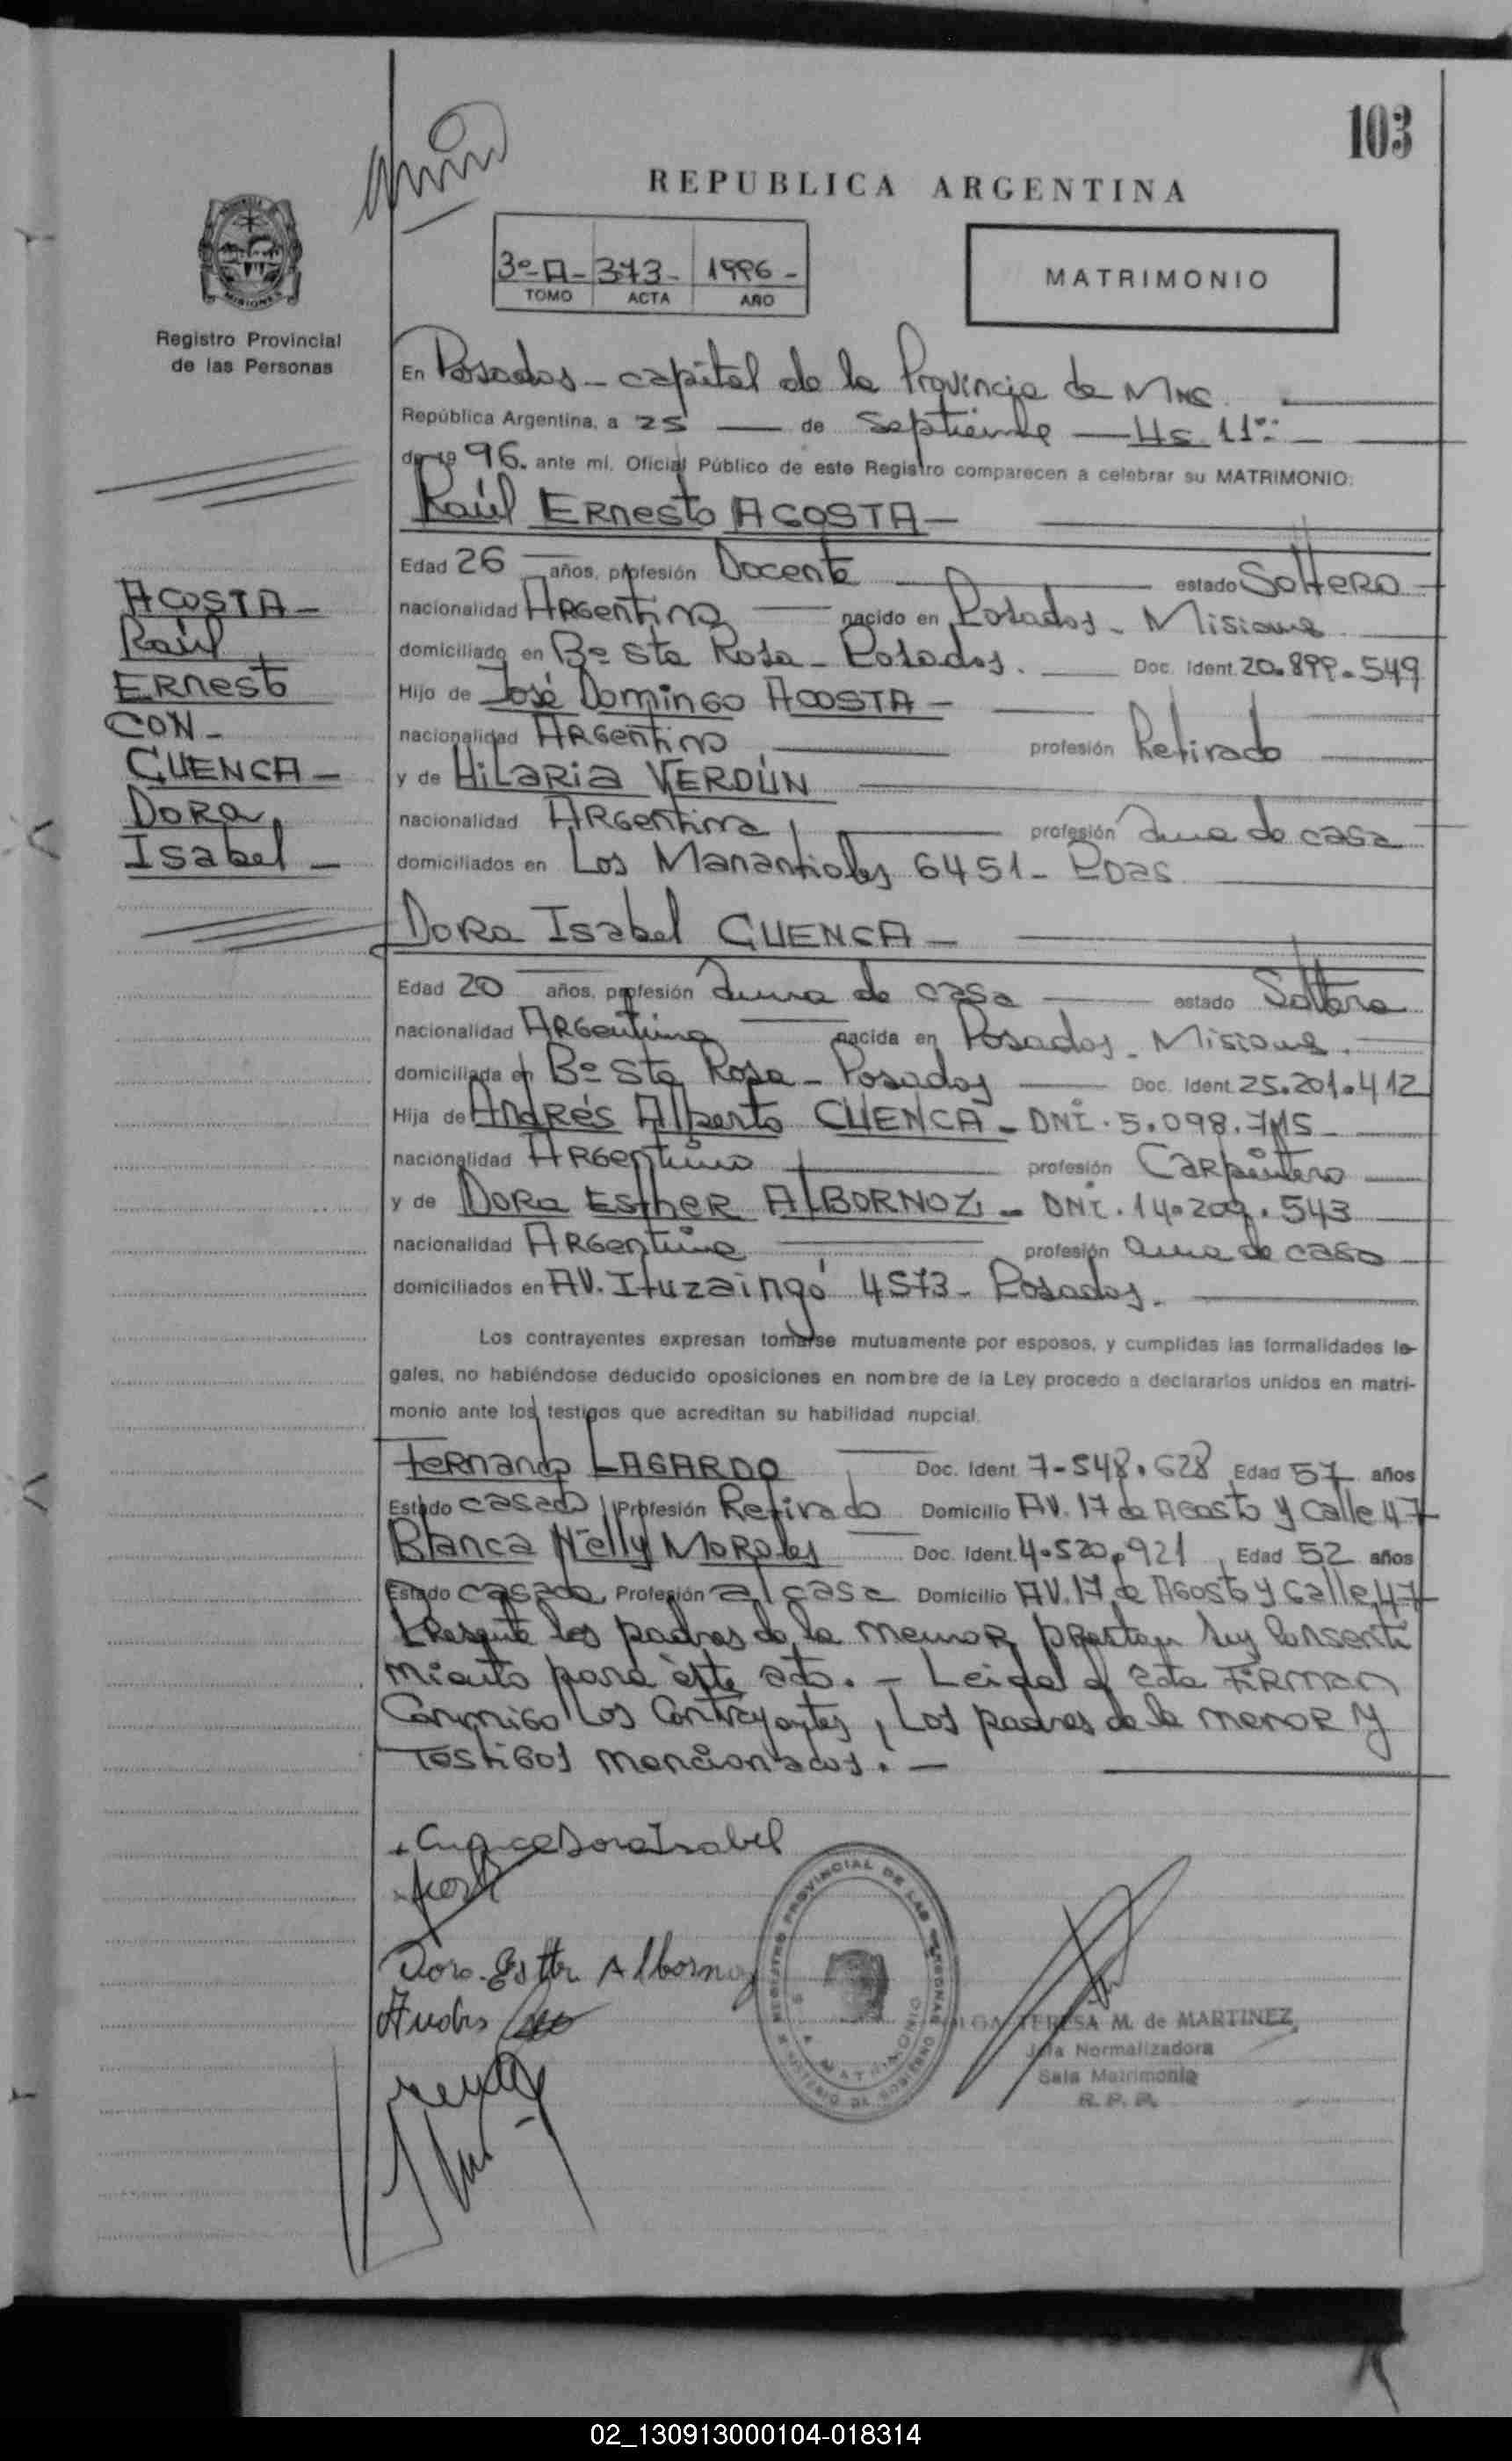 103
REPUBLICA ARGENTINA
3º-A- 373- 1996-
TOMO ACTA AÑO
MATRIMONIO
MISIONES
Registro Provincial
de las Personas
En Posadas - capital de la Provincia de Mnes.
República Argentina, a 25 — de Septiembre — Hs. 11
de 19 96. ante mi, Oficial Público de este Registro comparecen a celebrar su MATRIMONIO:
Raúl Ernesto ACOSTA -
Edad 26 años, profesión Docente estado Soltero
nacionalidad Argentino nacido en Posadas - Misiones
domiciliado en Bº Sta Rosa - Posadas. Doc. Ident. 20.899.549
Hijo de José Domingo ACOSTA -
nacionalidad Argentino profesión Retirado
y de Hilaria VERDÚN
nacionalidad Argentina profesión Ama de casa
domiciliados en Los Manantiales 6451 - Pdas
ACOSTA -
Raúl
Ernesto
CON -
CUENCA -
Dora
Isabel -
Dora Isabel CUENCA -
Edad 20 años, profesión Ama de casa estado Soltera
nacionalidad Argentina nacida en Posadas - Misiones.
domiciliada en Bº Sta Rosa - Posadas Doc. Ident. 25.201.412
Hija de Andrés Alberto CUENCA - DNI. 5.098.715
nacionalidad Argentino profesión Carpintero
y de Dora Esther ALBORNOZ - DNI. 14.209.543
nacionalidad Argentina profesión ama de casa
domiciliados en AV. Ituzaingó 4573 - Posadas.
Los contrayentes expresan tomarse mutuamente por esposos, y cumplidas las formalidades le-
gales, no habiéndose deducido oposiciones en nombre de la Ley procedo a declararlos unidos en matri-
monio ante los testigos que acreditan su habilidad nupcial.
Fernando LAGARDO Doc. Ident. 7-548.628 Edad 57 años
Estado casado Profesión Retirado Domicilio AV. 17 de Agosto y Calle 47
Blanca Nelly Morales Doc. Ident. 4.520.921 Edad 52 años
Estado casada Profesión a/casa Domicilio AV. 17 de Agosto y Calle 47
Presente los padres de la menor prestan su consenti
miento para éste acto. - Leida el acta FIRMAN
Conmigo Los Contrayentes, Los padres de la menor y
Testigos mencionados. -
Cuenca Dora Isabel
Dora Esther Albornoz
Andrés
REGISTRO PROVINCIAL DE LAS PERSONAS
MINISTERIO DE GOBIERNO
MATRIMONIO
OLGA TERESA M. de MARTINEZ
Jefa Normalizadora
Sala Matrimonio
R. P. P.
02_130913000104-018314